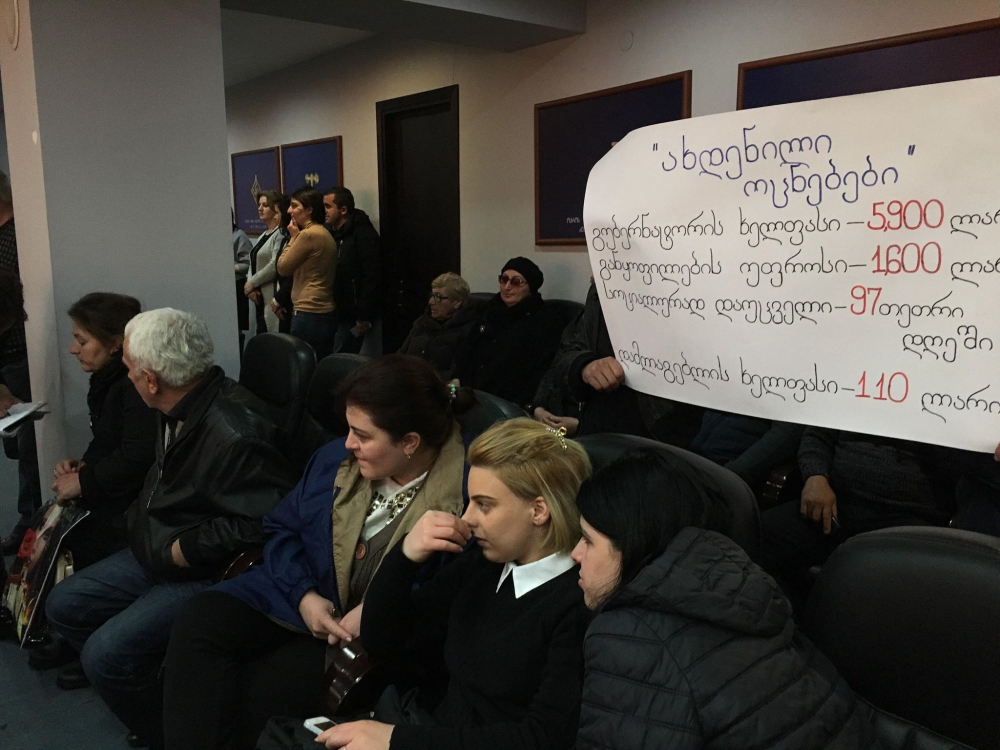 "ახდენილი
ოცნებები"
გუბერნატორის ხელფასი – 5,900 ლარ
განყოფილების უფროსი – 1,600 ლარ
სოციალურად დაუცველი – 97 თეთრი
დღეში
დამლაგებლის ხელფასი – 110 ლარი